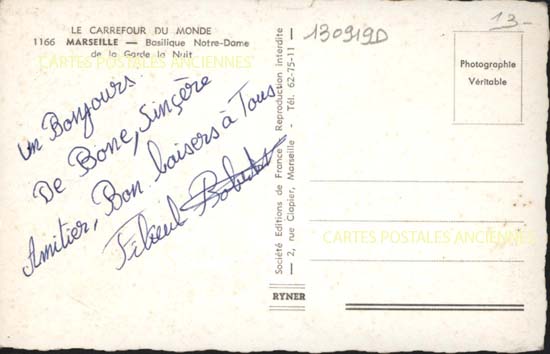 LE CARREFOUR DU MONDE
1166 MARSEILLE — Basilique Notre-Dame
de la Garde la Nuit
CARTES POSTALES ANCIENNES
un Bonjours
De Bone, Sinçère
Amitier, Bon baisers à Tous
130919D
13-
Photographie
Véritable
Société Editions de France - Reproduction interdite
— 2, rue Clapier, Marseille - Tél. 62-75-11 —
CARTES POSTALES ANCIENNES
RYNER